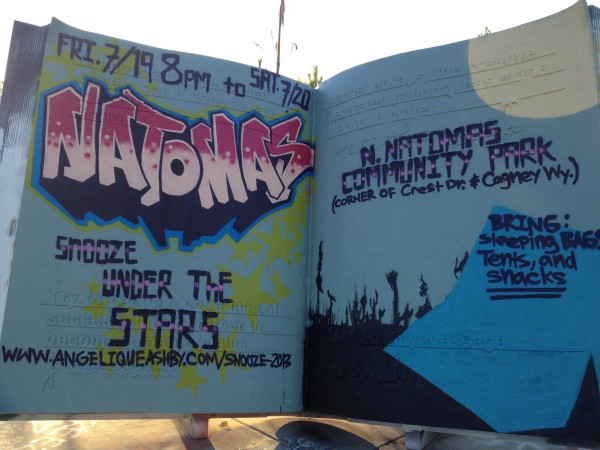 FRI. 7/19 8PM to SAT. 7/20
NATOMAS
SNOOZE
UNDER THE
STARS
WWW.ANGELIQUEASHBY.COM/SNOOZE-2013
N. NATOMAS
COMMUNITY PARK
(CORNER OF Crest Dr. & Cagney Wy.)
BRING:
sleeping BAGS
Tents, and
snacks
message